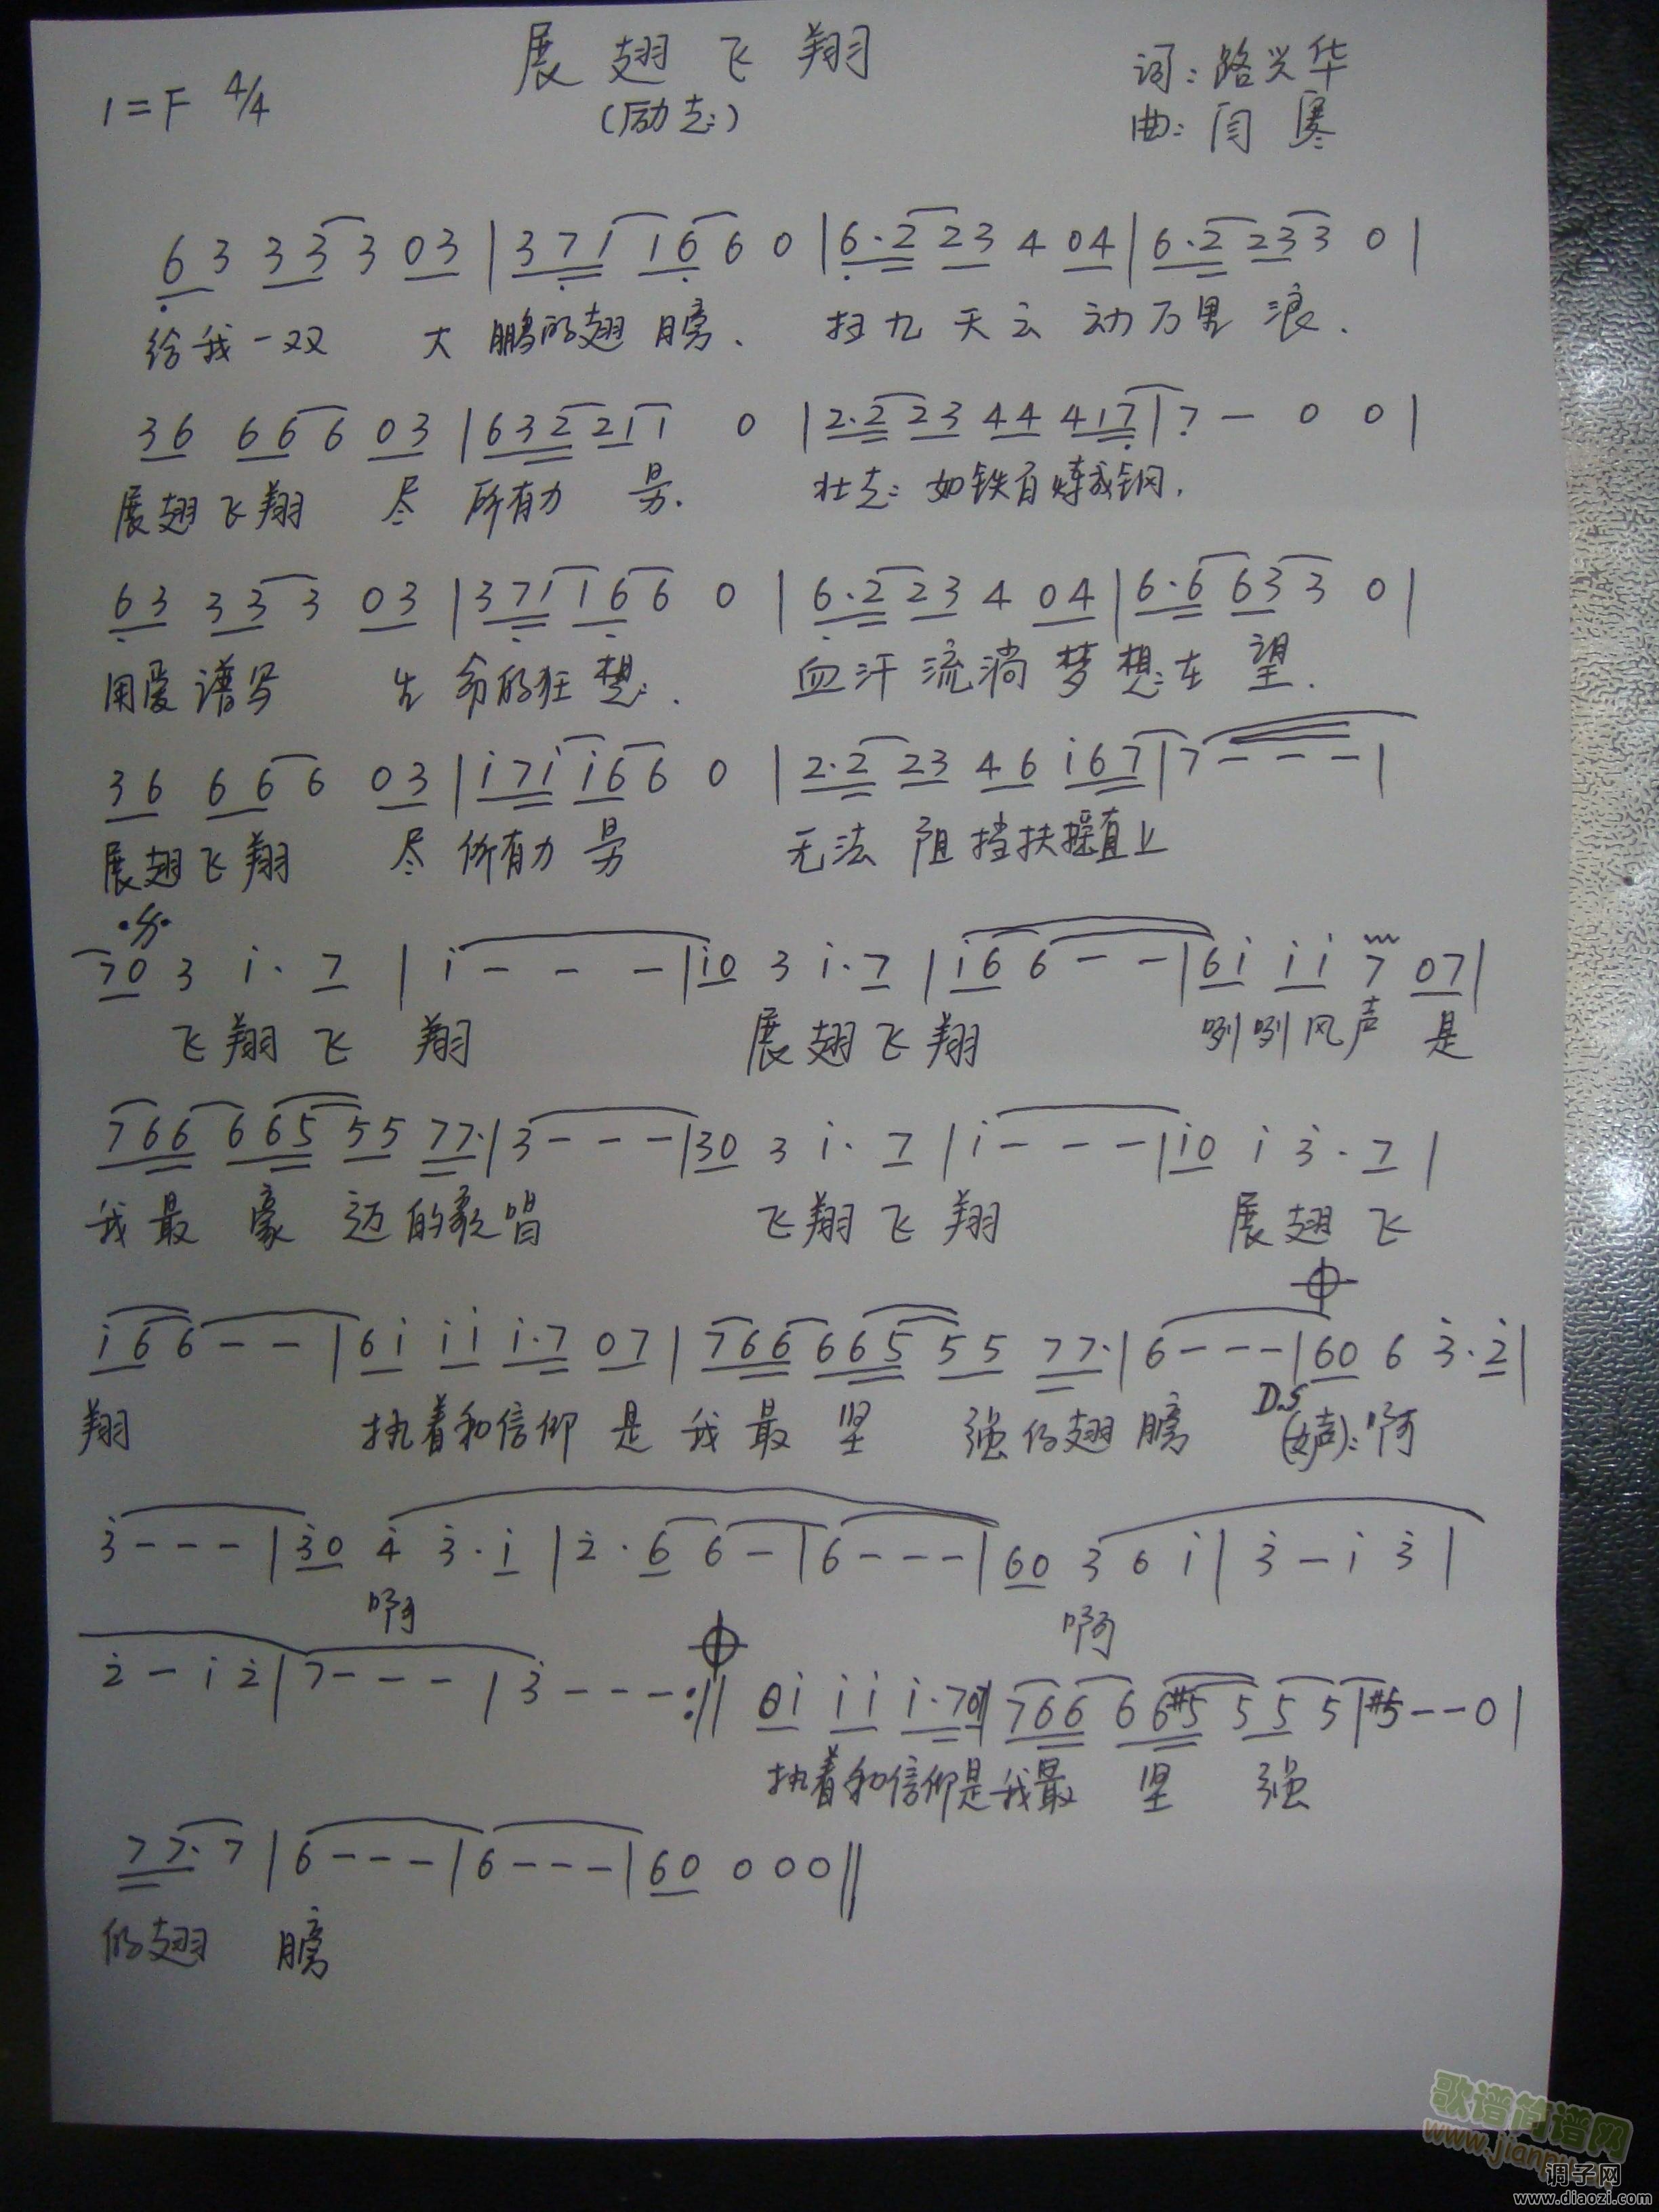 展翅飞翔
(励志)
1=F 4/4
词:路兴华
曲:闫寒
6 3 3 3 3 0 3 | 3 7 1 1 6 6 0 | 6·2 2 3 4 0 4 | 6·2 2 3 3 0 |
给我一双 大鹏的翅膀、 扫九天云动万里浪.
3 6 6 6 6 0 3 | 6 3 2 2 1 1 0 | 2·2 2 3 4 4 4 1 7 | 7 - 0 0 |
展翅飞翔 尽所有力量. 壮志如铁百炼成钢,
6 3 3 3 3 0 3 | 3 7 1 1 6 6 0 | 6·2 2 3 4 0 4 | 6·6 6 3 3 0 |
用爱谱写 生命的狂想. 血汗流淌梦想在望.
3 6 6 6 6 0 3 | i 7 i i 6 6 0 | 2·2 2 3 4 6 i 6 7 | 7 - - - |
展翅飞翔 尽所有力量 无法阻挡扶摇直上
7 0 3 i· 7 | i - - - | i 0 3 i·7 | i 6 6 - - | 6 i i i 7 0 7 |
飞翔飞翔 展翅飞翔 咧咧风声是
7 6 6 6 6 5 5 5 7 7· | 3 - - - | 3 0 3 i· 7 | i - - - | i 0 i 3· 7 |
我最豪迈的歌唱 飞翔飞翔 展翅飞
i 6 6 - - | 6 i i i i·7 0 7 | 7 6 6 6 6 5 5 5 7 7· | 6 - - - | 6 0 6 3·2 |
翔 执着和信仰是我最坚强的翅膀 D.S (女声):啊
3 - - - | 3 0 4 3·i | 2·6 6 - | 6 - - - | 6 0 3 6 i | 3 - i 3 |
啊 啊
2 - i 2 | 7 - - - | 3 - - - :|| 0 i i i i·7 0 7 | 7 6 6 6 6 #5 5 5 5 | #5 - - 0 |
执着和信仰是我最坚强
7 7· 7 | 6 - - - | 6 - - - | 6 0 0 0 0 ||
的翅膀
歌谱简谱网
www.jianpu.cn
调子网
www.diaozi.com